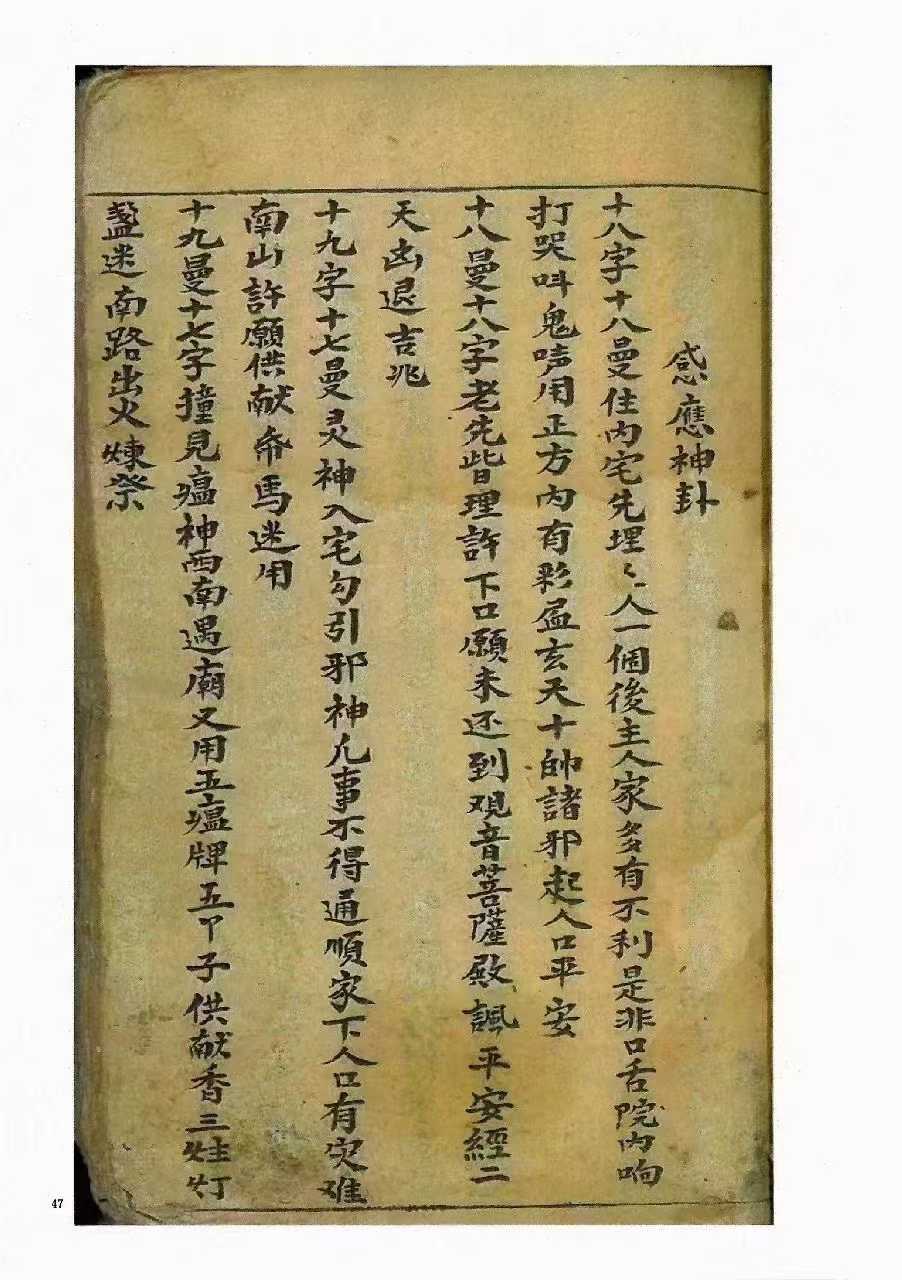 感應神卦
十八字十八曼住内宅先埋〻人一個後主人家多有不利是非口舌院内响
打哭呌鬼唕用正方内有彩孟玄天十帥諸邪起人口平安
十八曼十八字老先皆理許下口願未还到观音菩薩殿諷平安經二
天凶退吉兆
十九字十七曼灵神入宅勾引邪神凡事不得通順家下人口有灾难
南山許願供献帋馬送用
十九曼十七字撞見瘟神西南遇廟又用五瘟牌五甲子供献香三炷灯
盞送南路出火煉祭
47